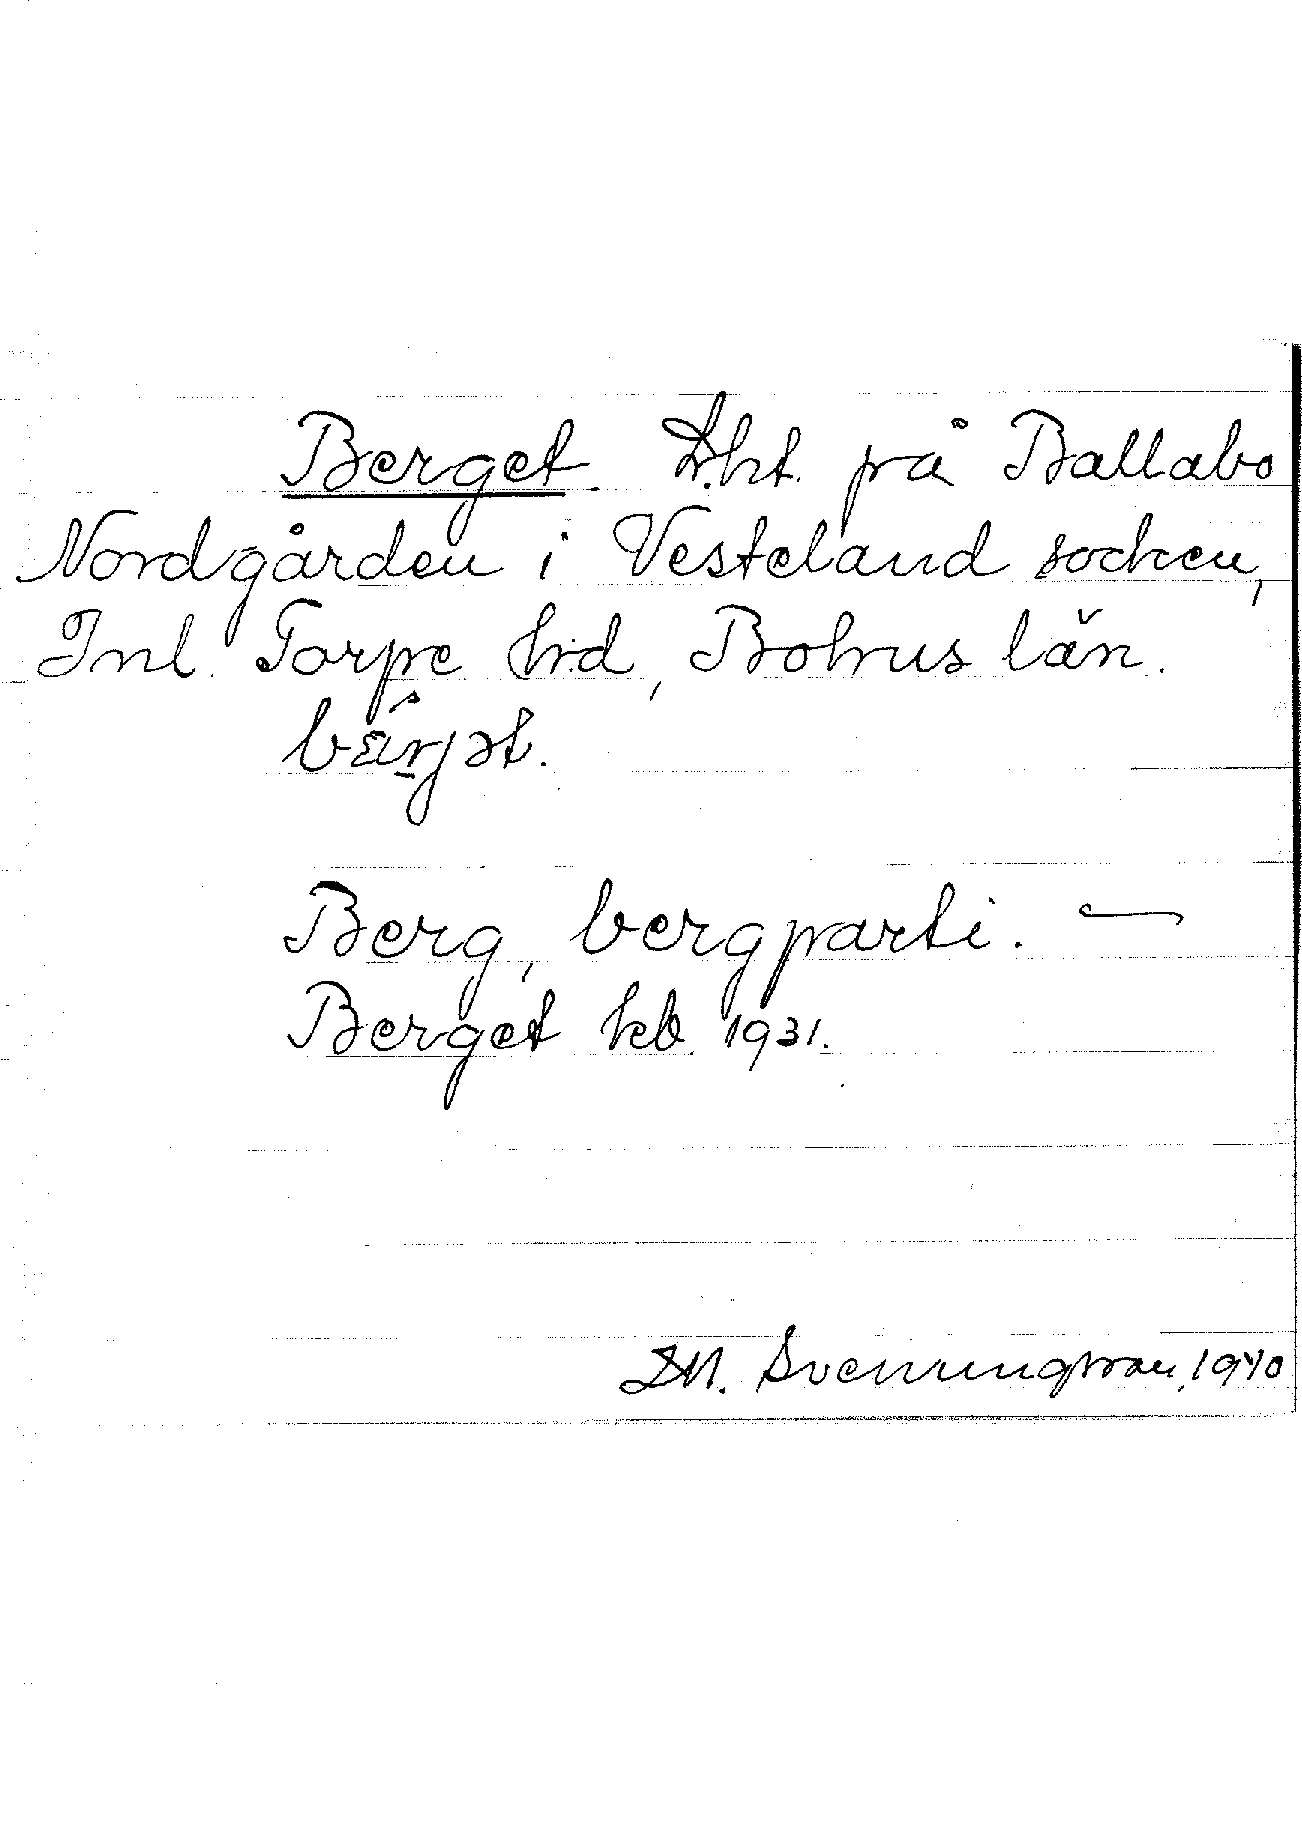 Berget. Lht. på Ballabo
Nordgården i Vesteland socken,
Inl. Torpe hrd, Bohus län.
bä̂rjət.
Berg, bergparti. —
Berget kb. 1931.
M. Svenningsson, 1940